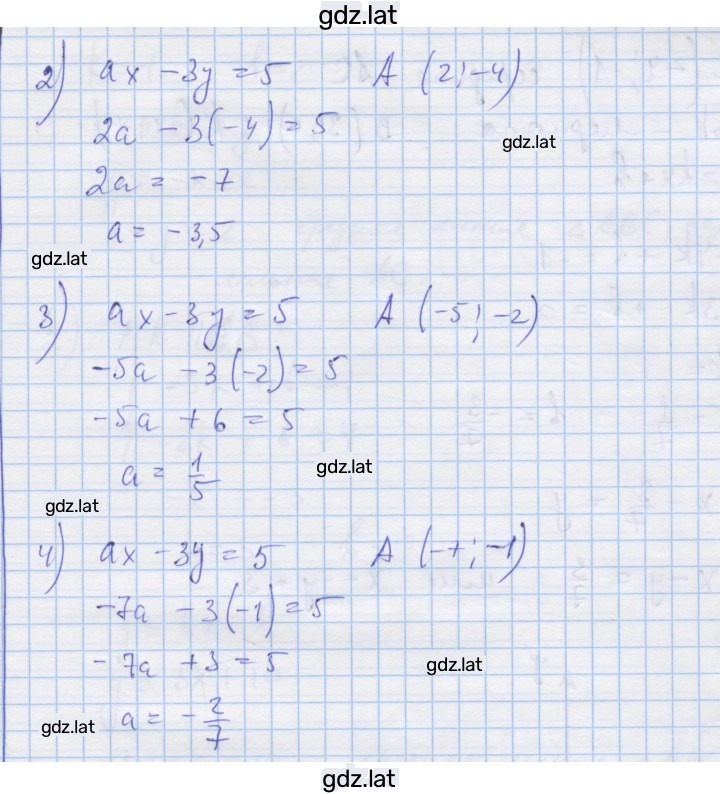 gdz.lat
2) ax - 3y = 5 A (2; -4)
2a - 3(-4) = 5
gdz.lat
2a = -7
a = -3,5
gdz.lat
3) ax - 3y = 5 A (-5; -2)
-5a - 3(-2) = 5
-5a + 6 = 5
a = 1/5
gdz.lat
gdz.lat
4) ax - 3y = 5 A (-7; -1)
-7a - 3(-1) = 5
-7a + 3 = 5
gdz.lat
a = -2/7
gdz.lat
gdz.lat